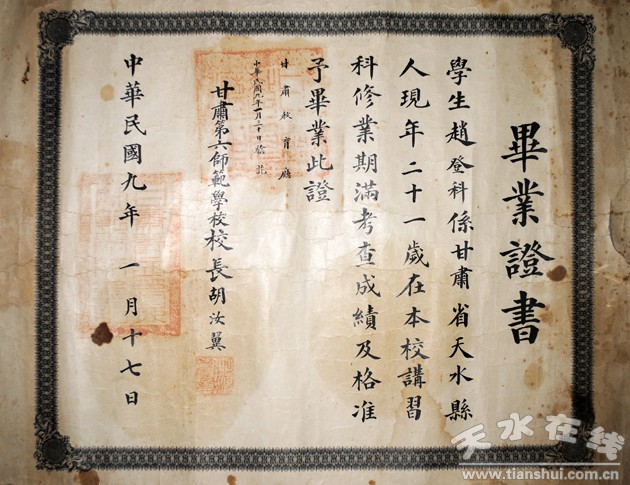 畢業證書
學生趙登科係甘肅省天水縣
人現年二十一歲在本校講習
科修業期滿考查成績及格准
予畢業此證
甘肅教育廳
中華民國九年一月三十日驗訖
甘肅第六師範學校校長胡汝翼
中華民國九年一月十七日
天水在线
www.tianshui.com.cn